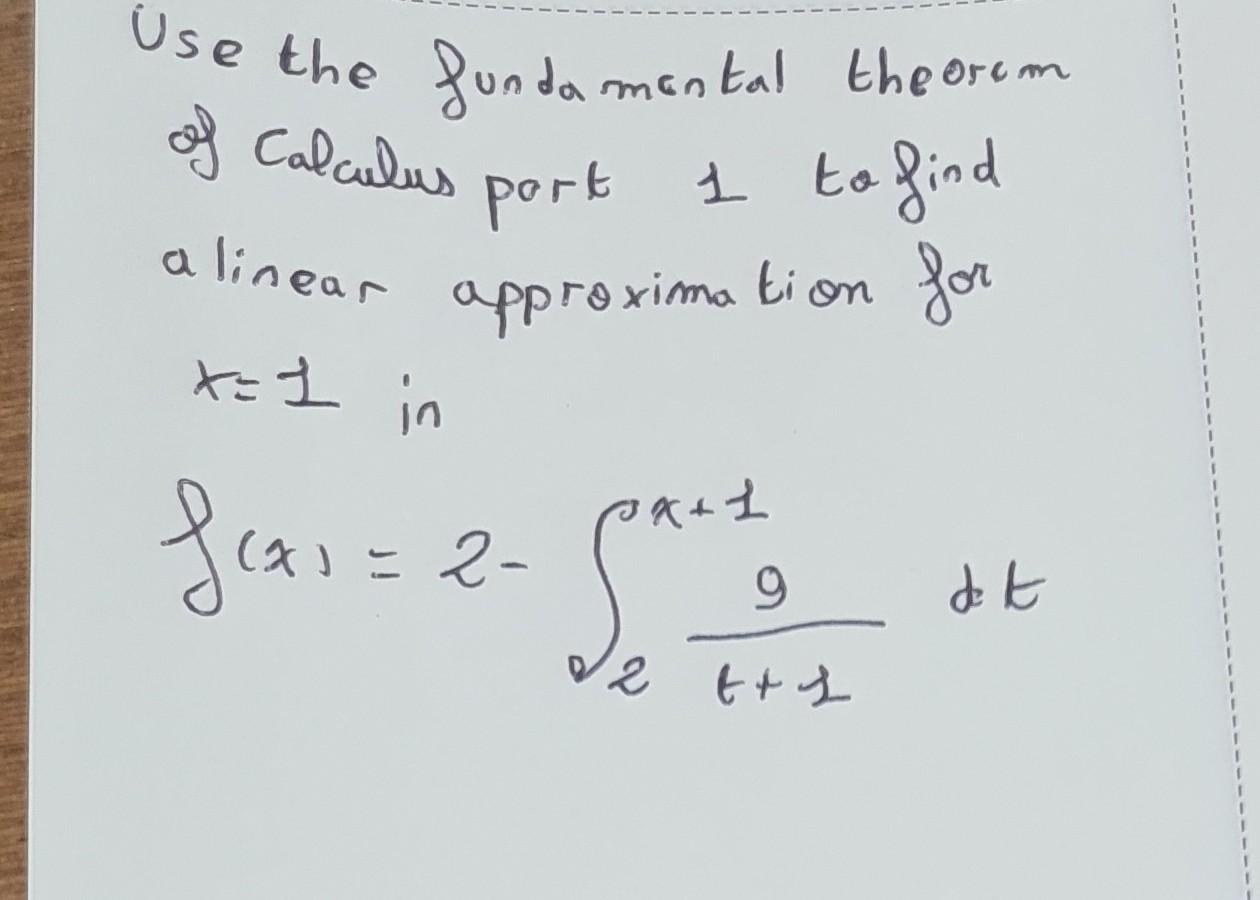 Use the fundamental theorem
of Calculus part 1 to find
a linear approximation for
x=1 in
f(x) = 2- ∫₂ˣ⁺¹ 9/(t+1) dt